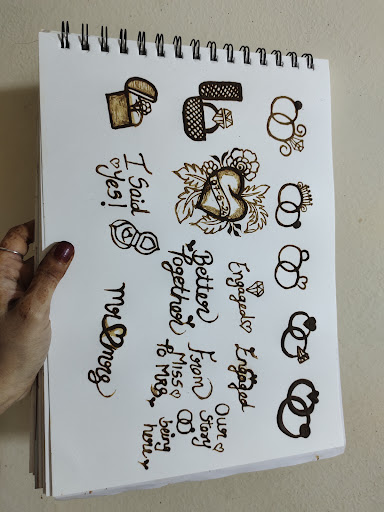 Engaged
Engaged
Our
Story
being
here
Better
Together
From
Miss
to MRS
I Said
Yes!